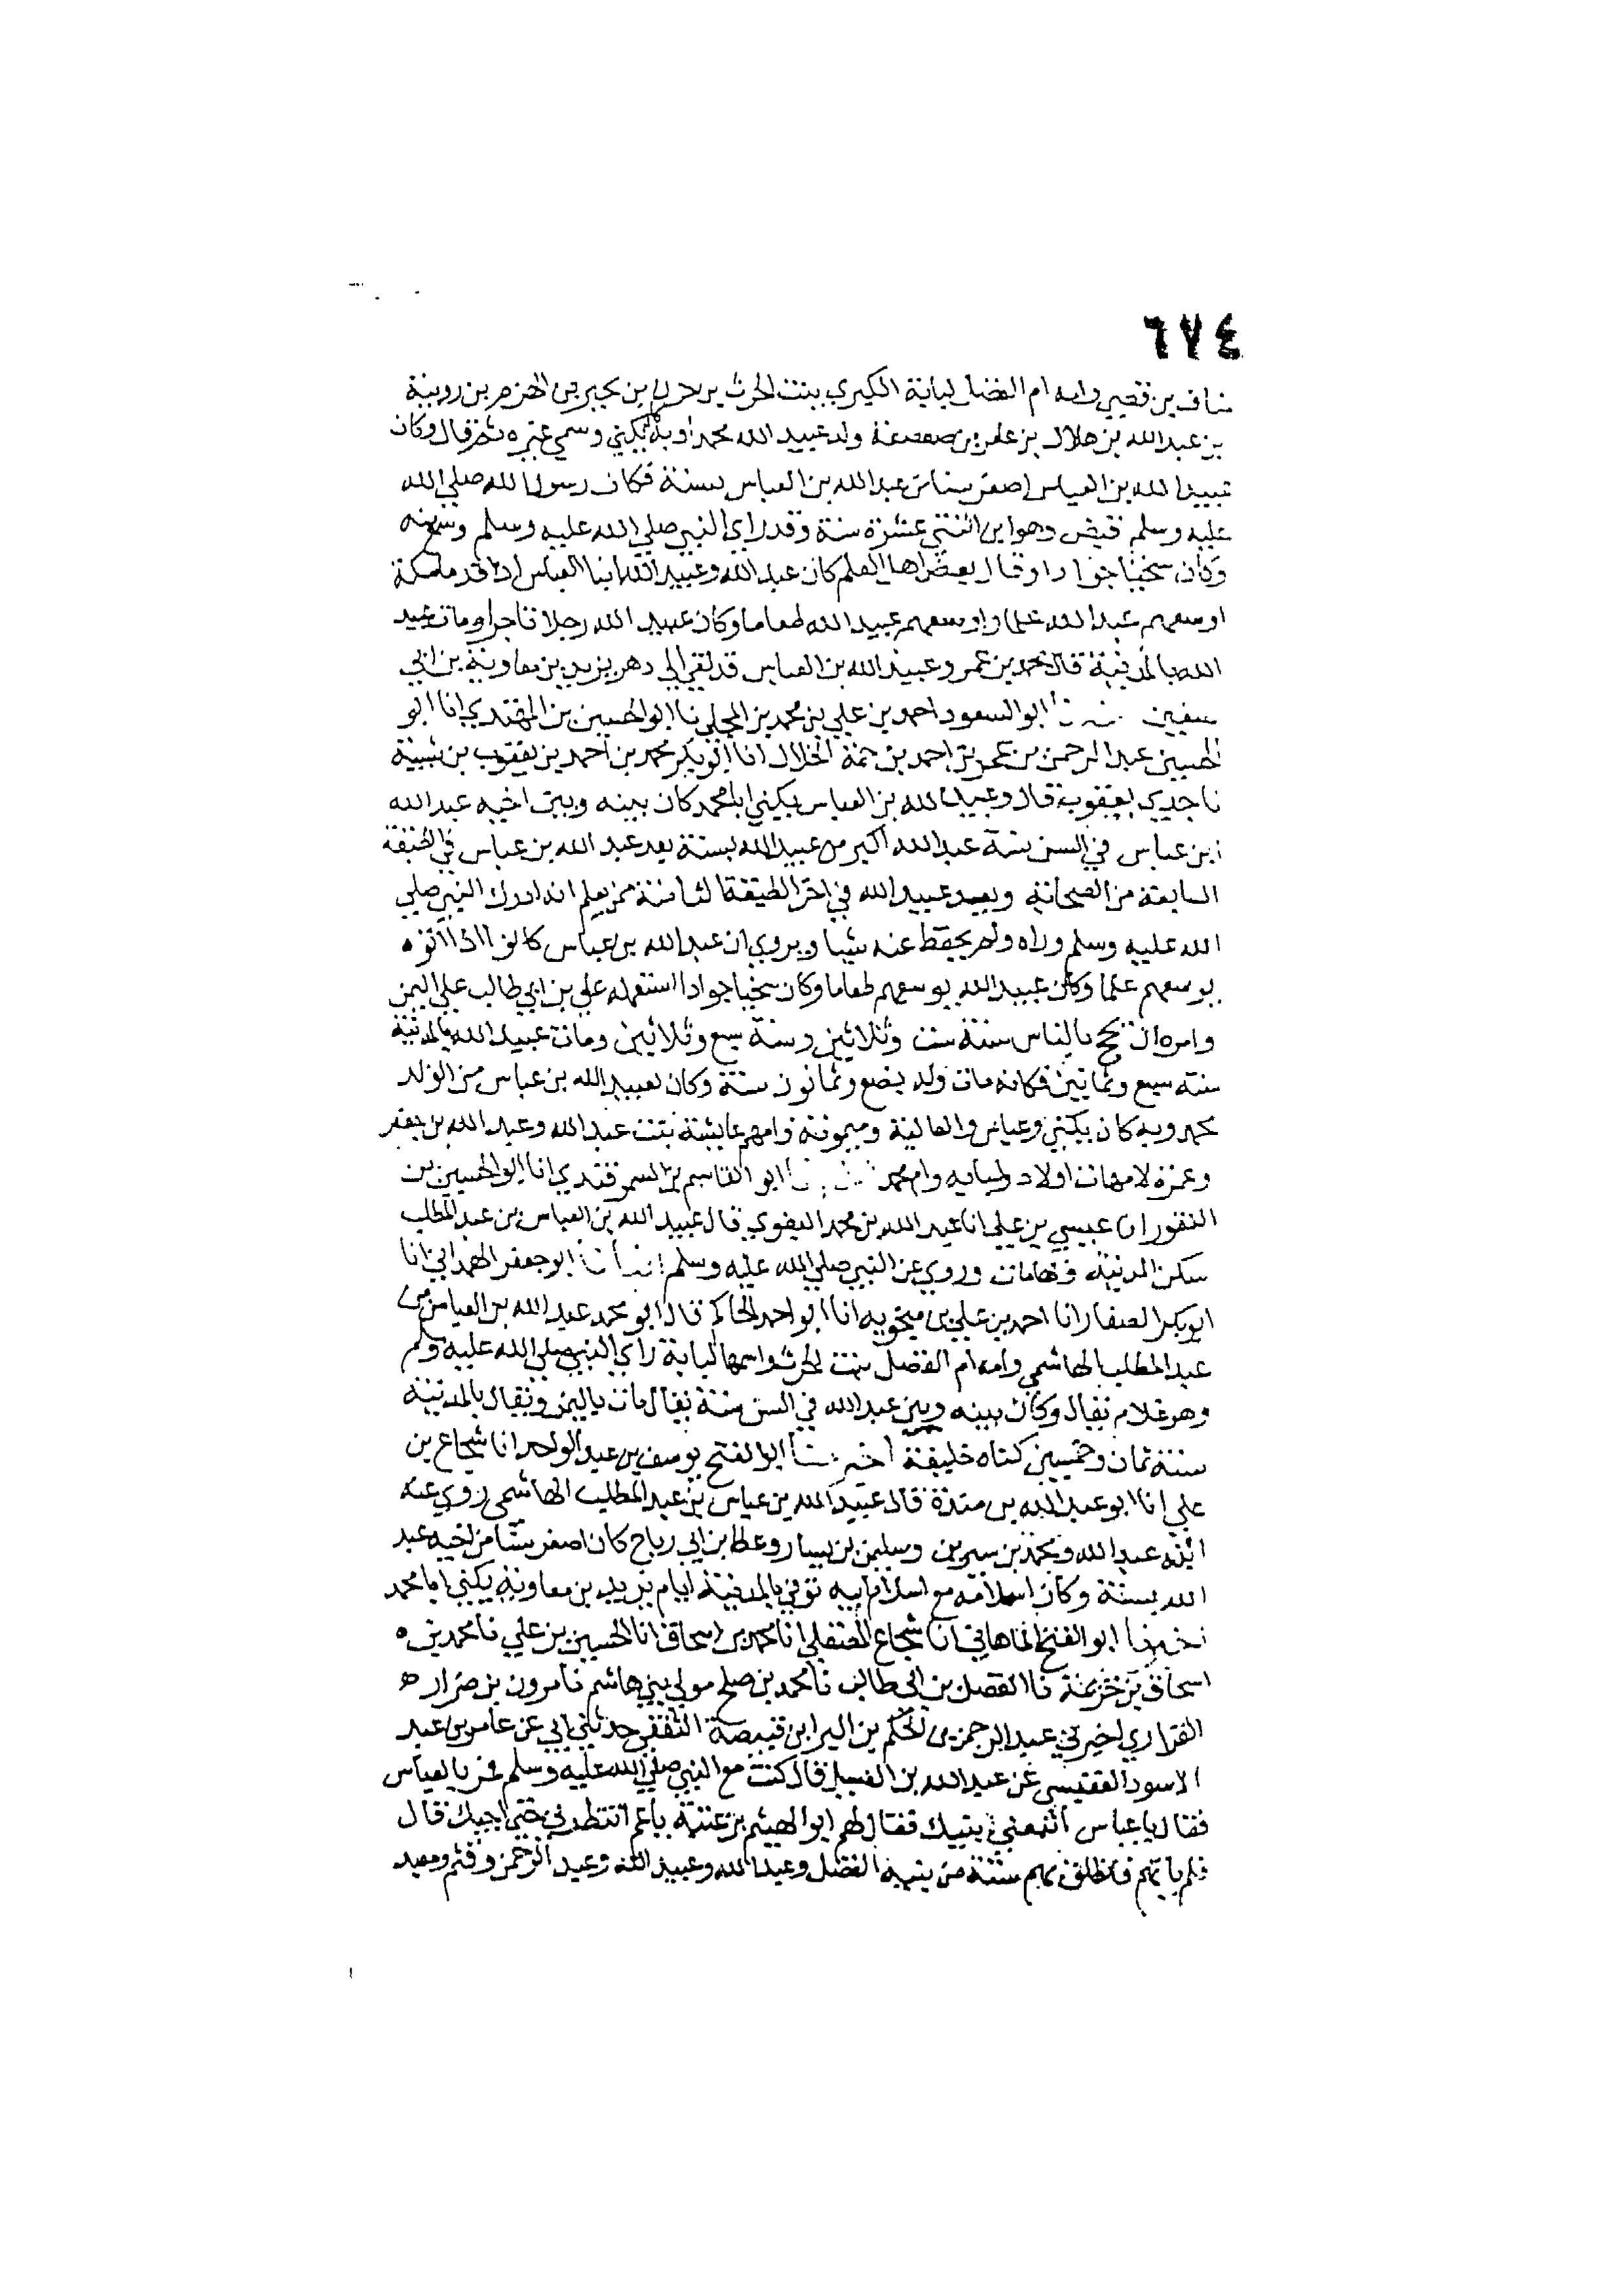 ٦٧٤
مناف بن قصي وامه ام الفضل لبابة الكبرى بنت الحرث بن حزن بن بجير بن الهزم بن رويبة
بن عبد الله بن هلال بن عامر بن صعصعة ولد عبيد الله محمدا وبه كان يكنى وسمى غيره ثم قال وكان
عبيد الله بن العباس اصغر سنا من عبد الله بن العباس بسنة فكان رسول الله صلى الله
عليه وسلم قبض وهو ابن اثنتي عشرة سنة وقد راى النبي صلى الله عليه وسلم وسمع منه
وكان سخيا جوادا وقال بعض اهل العلم كان عبد الله وعبيد الله ابنا العباس اذا قدما مكة
اوسعهم عبد الله علما واوسعهم عبيد الله طعاما وكان عبيد الله رجلا تاجرا ومات عبيد
الله بالمدينة قال محمد بن عمر وعبيد الله بن العباس قد بقي الى دهر يزيد بن معاوية بن ابي
سفين ابو السعود احمد بن علي بن محمد بن المجلي نا ابو الحسين بن المهتدي انا ابو
الحسين عبد الرحمن بن عمر بن احمد بن حمة الخلال انا ابو بكر محمد بن احمد بن يعقوب بن شيبة
نا جدي يعقوب قال وعبيد الله بن العباس يكنى ابا محمد كان بينه وبين اخيه عبد الله
بن عباس في السن سنة عبد الله اكبر من عبيد الله بسنة يعد عبد الله بن عباس في الطبقة
السابعة من الصحابة ويعد عبيد الله في اخر الطبقة الثامنة ممن يعلم انه ادرك النبي صلى
الله عليه وسلم وراه ولم يحفظ عنه شيا ويروى ان عبد الله بن عباس كانوا اذا اتوه
يوسعهم علما وكان عبيد الله يوسعهم طعاما وكان سخيا جوادا استعمله علي بن ابي طالب على اليمن
وامره ان يحج بالناس سنة ست وثلاثين وسنة سبع وثلاثين ومات عبيد الله بالمدينة
سنة سبع وثمانين فكانه مات وله بضع وثمانون سنة وكان لعبيد الله بن عباس من الولد
محمد وبه كان يكنى وعباس والعالية وميمونة وامهم عايشة بنت عبد الله وعبد الله بن جعفر
وعمرة لامهات اولاد ولبابه وام محمد ابو القاسم بن السمرقندي انا ابو الحسين بن
النقور انا عيسى بن علي انا عبد الله بن محمد البغوي قال عبيد الله بن العباس بن عبد المطلب
سكن المدينة وبها مات وروى عن النبي صلى الله عليه وسلم انبأنا ابو جعفر الهمداني انا
ابو بكر الصفار انا احمد بن علي بن منجويه انا ابو احمد الحاكم قال ابو محمد عبيد الله بن العباس بن
عبد المطلب الهاشمي وامه ام الفضل بنت الحرث واسمها لبابة راى النبي صلى الله عليه وسلم
وهو غلام يقال وكان بينه وبين عبد الله في السن سنة يقال مات باليمن ويقال بالمدينة
سنة ثمان وخمسين كناه خليفة اخبرنا ابو الفتح يوسف بن عبد الواحد انا شجاع بن
علي انا ابو عبد الله بن مندة قال عبيد الله بن عباس بن عبد المطلب الهاشمي روى عنه
ابنه عبد الله ومحمد بن سيرين وسليمن بن يسار وعطا بن ابي رباح كان اصغر سنا من اخيه عبد
الله بسنة وكان اسلامه مع اسلام ابيه توفي بالمدينة ايام يزيد بن معاوية يكنى ابا محمد
اخبرنا ابو الفتح الماهاني انا شجاع المصقلي انا محمد بن اسحاق انا الحسين بن علي نا محمد بن
اسحاق بن خزيمة نا الفضل بن ابي طالب نا محمد بن صلح مولى بني هاشم نا مرون بن ضرار
الفزاري اخبرني عبد الرحمن بن الحكم بن البرا بن قبيصة الثقفي حدثني ابي عن عامر بن عبد
الاسود العبقسي عن عبد الله بن الغسيل قال كنت مع النبي صلى الله عليه وسلم فمر بالعباس
فقال يا عباس اتبعني ببنيك فقال لهم ابو الهيثم بن عتبة يا عم انتظرني حتى اجيك قال
فلم ياتهم فانطلق بهم ستة من بنيه الفضل وعبد الله وعبيد الله وعبد الرحمن وقثم ومعبد